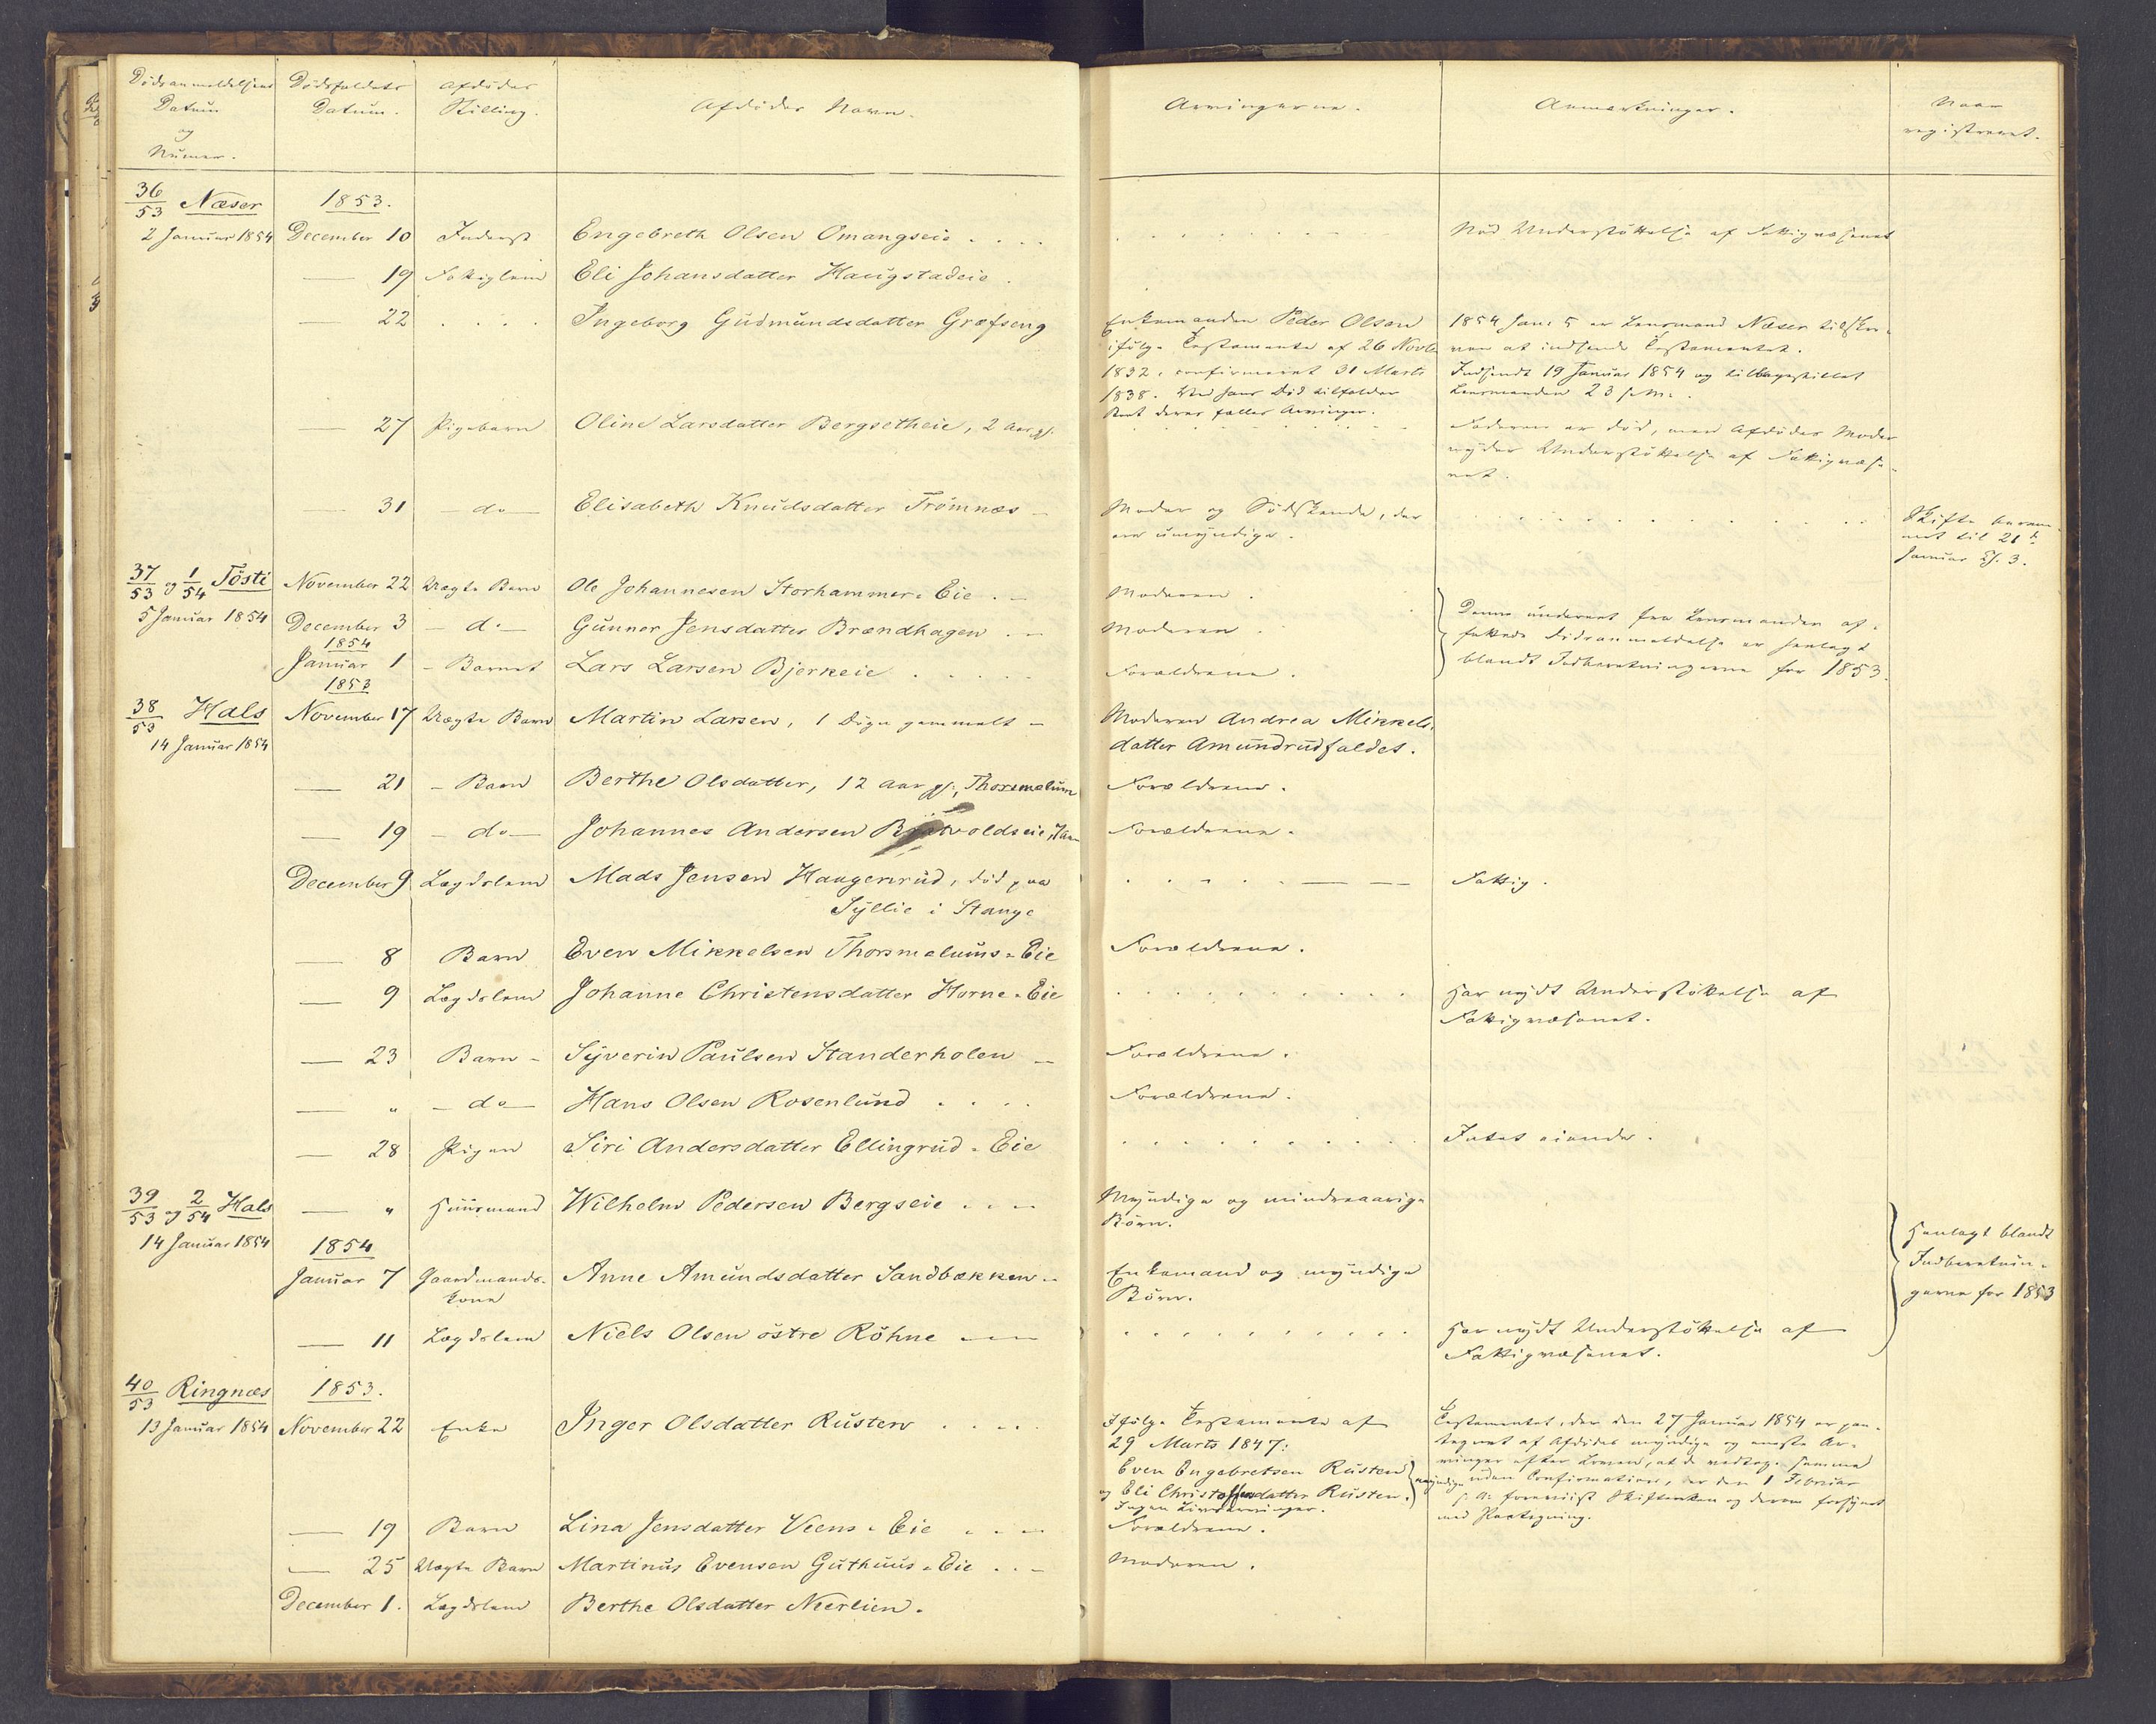 Dödsanmeldelsens Datum og Numer.
Dödsfaldets Datum.
Afdödes Stilling.
Afdödes Navn.
Arvingerne.
Anmærkninger.
Naar registreret.
36/53 Næser 1853.
2 Januar 1854 December 10 Inderst Engebreth Olsen Omangseie . . . . Nöd Understöttelse af Fattigvæsenet
— 19 Fattiglem Eli Johansdatter Haugstadeie .
— 22 . . . . Ingeborg Gudmundsdatter Græfseng
Enkemanden Peder Olsen
ifölge Testamente af 26 Novbr
1832, confirmeret 31 Marts
1838. Ved hans Död tilfalder
Boet deres fælles Arvinger.
1854 Jan: 5 er Lensmand Næser tilskre-
ven at indsende Testamentet.
Indsendt 19 Januar 1854 og tilbagestillet
Lensmanden 23 s. M.
— 27 Pigebarn Oline Larsdatter Bergsetheie, 2 Aar gl.
Faderen er död, men Afdödes Moder
nyder Understöttelse af Fattigvæse-
net.
— 31 — do — Elisabeth Knudsdatter Tromnæs —
Moder og Södskende, der
ere umyndige.
Skifte beram-
met til 21de
Januar Kl. 3.
37/53 og 1/54 Tösti November 22 Uægte Barn Ole Johannesen Storhammer-Eie . — Moderen.
5 Januar 1854 December 3 — do — Gunner Jensdatter Brændhagen . — Moderen.
1854
Januar 1 — Barnet Lars Larsen Bjerkeie . . . . . Forældrene.
Denne underert fra Lensmanden af-
fattede Dödsanmeldelse er henlagt
blandt Indberetningerne for 1853.
1853
38/53 Hals November 17 Uægte Barn Martin Larsen, 1 Dögn gammelt — Moderen Andrea Mikkels-
14 Januar 1854 datter Amundrudfaldet.
— 21 — Barn Berthe Olsdatter, 12 Aar gl., Thorsmelum Forældrene.
— 19 — do — Johannes Andersen Forældrene.
December 9 Lægdslem Mads Jensen Haugerrud, död paa Fattig.
Syllie i Stange
— 8 Barn Even Mikkelsen Thorsmelums-Eie Forældrene.
— 9 Lægdslem Johanne Christensdatter Horne-Eie . . . . . . . . . . Har nydt Understöttelse af
Fattigvæsenet.
— 23 Barn — Syverin Paulsen Standerholen — Forældrene.
— " — do — Hans Olsen Rosenlund . . . . Forældrene.
— 28 Pigen Siri Andersdatter Ellingrud-Eie . . . . . . . . . . Intet eiende.
39/53 og 2/54 Hals — " Huusmand Wilhelm Pedersen Bergseie . . — Myndige og mindreaarige
Börn.
14 Januar 1854 1854
Januar 7 Gaardmands- Anne Amundsdatter Sandbækken — Enkemand og myndige
kone Börn.
— 11 Lægdslem Niels Olsen östre Röhne — . . . . . . . . . . Har nydt Understöttelse af
Fattigvæsenet.
Henlagt blandt
Indberetnin-
gerne for 1853
40/53 Ringnæs 1853.
13 Januar 1854 November 22 Enke Inger Olsdatter Rusten . . . .
Ifölge Testamente af
29 Marts 1847:
Even Engebretsen Rusten
og Eli Christoffersdatter Rusten. myndige
Ingen Livsarvinger.
Testamentet, der den 27 Januar 1854 er paa-
tegnet af Afdödes myndige og eneste Ar-
vinger efter Loven, at de vedtage samme
uden Confirmation, er den 1 Februar
s. A. foreviist Skifteretten og derom forsynet
med Paategning.
— 19 Barn Lina Jensdatter Veens-Eie . . — Forældrene.
— 25 Uægte Barn Martinus Evensen Guthuus-Eie . . — Moderen.
December 1. Lægdslem Berthe Olsdatter Neerlien.